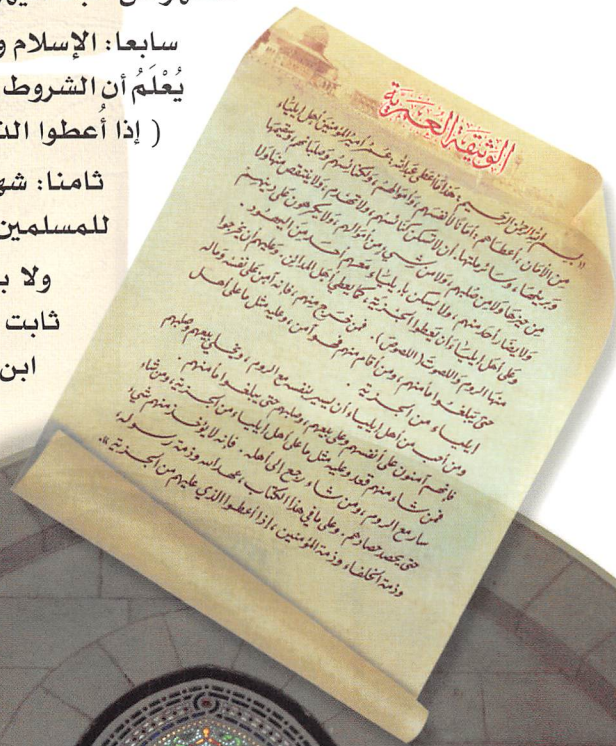 سابعا: الإسلام
يُعْلَمُ أن الشروط
( إذا أُعطوا
ثامنا:
للمسلمين
ولا
ثابت
ابن
الوثيقة العمرية
« بسم الله الرحمن الرحيم : هذا ما أعطى عبد الله : عمر أمير المؤمنين أهل إيلياء
من الأمان ، أعطاهم أماناً لأنفسهم ، وأموالهم ، ولكنائسهم وصلبانهم وسقيمها
وبريئها ، وسائر ملتها ، أن لا تسكن كنائسهم ، ولا تهدم ، ولا ينتقص منها ولا
من حيزها ولا من صليبهم ، ولا من شيء من أموالهم ، ولا يكرهون على دينهم
ولا يضار أحد منهم ، ولا يسكن بإيلياء معهم أحد من اليهود .
وعلى أهل إيلياء أن يعطوا الجزية ، كما يعطي أهل المدائن ، وعليهم أن يخرجوا
منها الروم واللصوت (اللصوص) . فمن خرج منهم ، فإنه آمن على نفسه وماله
حتى يبلغوا مأمنهم ، ومن أقام منهم فهو آمن ، وعليه مثل ما على أهل
إيلياء من الجزية .
ومن أحب من أهل إيلياء أن يسير بنفسه مع الروم ، ويخلي بيعهم وصلبهم
فإنهم آمنون على أنفسهم وعلى بيعهم ، وصلبهم حتى يبلغوا مأمنهم .
فمن شاء منهم قعد وعليه مثل ما على أهل إيلياء من الجزية ، ومن شاء
سار مع الروم ، ومن شاء رجع إلى أهله . فإنه لا يؤخذ منهم شيء
حتى يحصد حصادهم . وعلى ما في هذا الكتاب ، عهد الله وذمة رسوله ،
وذمة الخلفاء وذمة المؤمنين ، إذا أعطوا الذي عليهم من الجزية ».